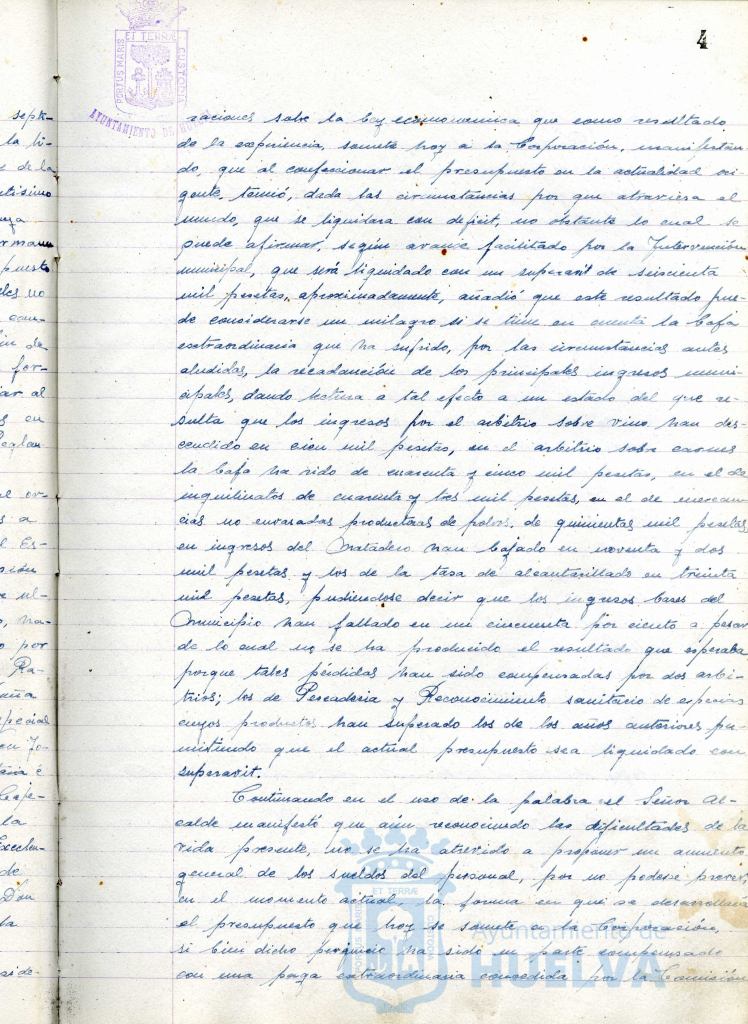 4
PORTUS MARIS ET TERRÆ CUSTODIA
AYUNTAMIENTO DE HUELVA
raciones sobre la Ley economonomica que como resultado
de la experiencia, somete hoy a la Corporación, manifestan-
do, que al confeccionar el presupuesto en la actualidad vi-
gente, temió, dada las circunstancias por que atraviesa el
mundo, que se liquidara con deficit, no obstante lo cual se
puede afirmar, según avance facilitado por la Intervención
municipal, que será liquidado con un superavit de seiscienta
mil pesetas, aproximadamente, añadió que este resultado pue-
de considerarse un milagro si se tiene en cuenta la baja
extraordinaria que ha sufrido, por las circunstancias antes
aludidas, la recaudación de los principales ingresos muni-
cipales, dando lectura a tal efecto a un estado del que re-
sulta que los ingresos por el arbitrio sobre vino han des-
cendido en cien mil pesetas, en el arbitrio sobre carnes
la baja ha sido de cuarenta y cinco mil pesetas, en el de
inquilinatos de cuarenta y tres mil pesetas, en el de mercan-
cias no envasadas productoras de polvos, de quinientas mil pesetas
en ingresos del Matadero han bajado en noventa y dos
mil pesetas y los de la tasa de alcantarillado en treinta
mil pesetas, pudiendose decir que los ingresos bases del
Municipio han fallado en un cincuenta por ciento a pesar
de lo cual no se ha producido el resultado que esperaba
porque tales pérdidas han sido compensadas por dos arbi-
trios; los de Pescaderia y Reconocimiento sanitario de especies
cuyos productos han superado los de los años anteriores per-
mitiendo que el actual presupuesto sea liquidado con
superavit.
Continuando en el uso de la palabra el Señor Al-
calde manifestó que aún reconociendo las dificultades de la
vida presente, no se ha atrevido a proponer un aumento
general de los sueldos del personal, por no poderse prever,
en el momento actual, la forma en que se desarrollara
el presupuesto que hoy se somete a la Corporación,
si bien dicho perjuicio ha sido en parte compensado
con una paga extraordinaria concedida por la Comisión
Ayuntamiento de
HUELVA